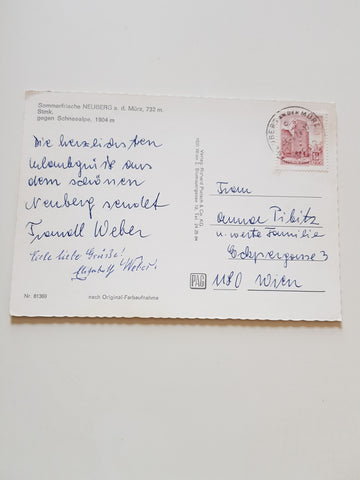 Sommerfrische NEUBERG a. d. Mürz, 732 m.
Stmk.
gegen Schneealpe, 1904 m
Die herzlichsten
Urlaubsgrüße aus
dem schönen
Neuberg sendet
Weber
Viele liebe Grüße!
Weber
Nr. 81369
nach Original-Farbaufnahme
Verlag Richard Pietsch, Co. KG.
1021 Wien
PAG
NEUBERG AN DER MÜRZ
Frau
Anna
u. werte Familie
3
1180 Wien